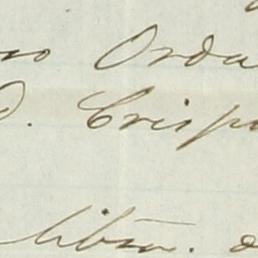 no Orda
D. Crisp
libro. d